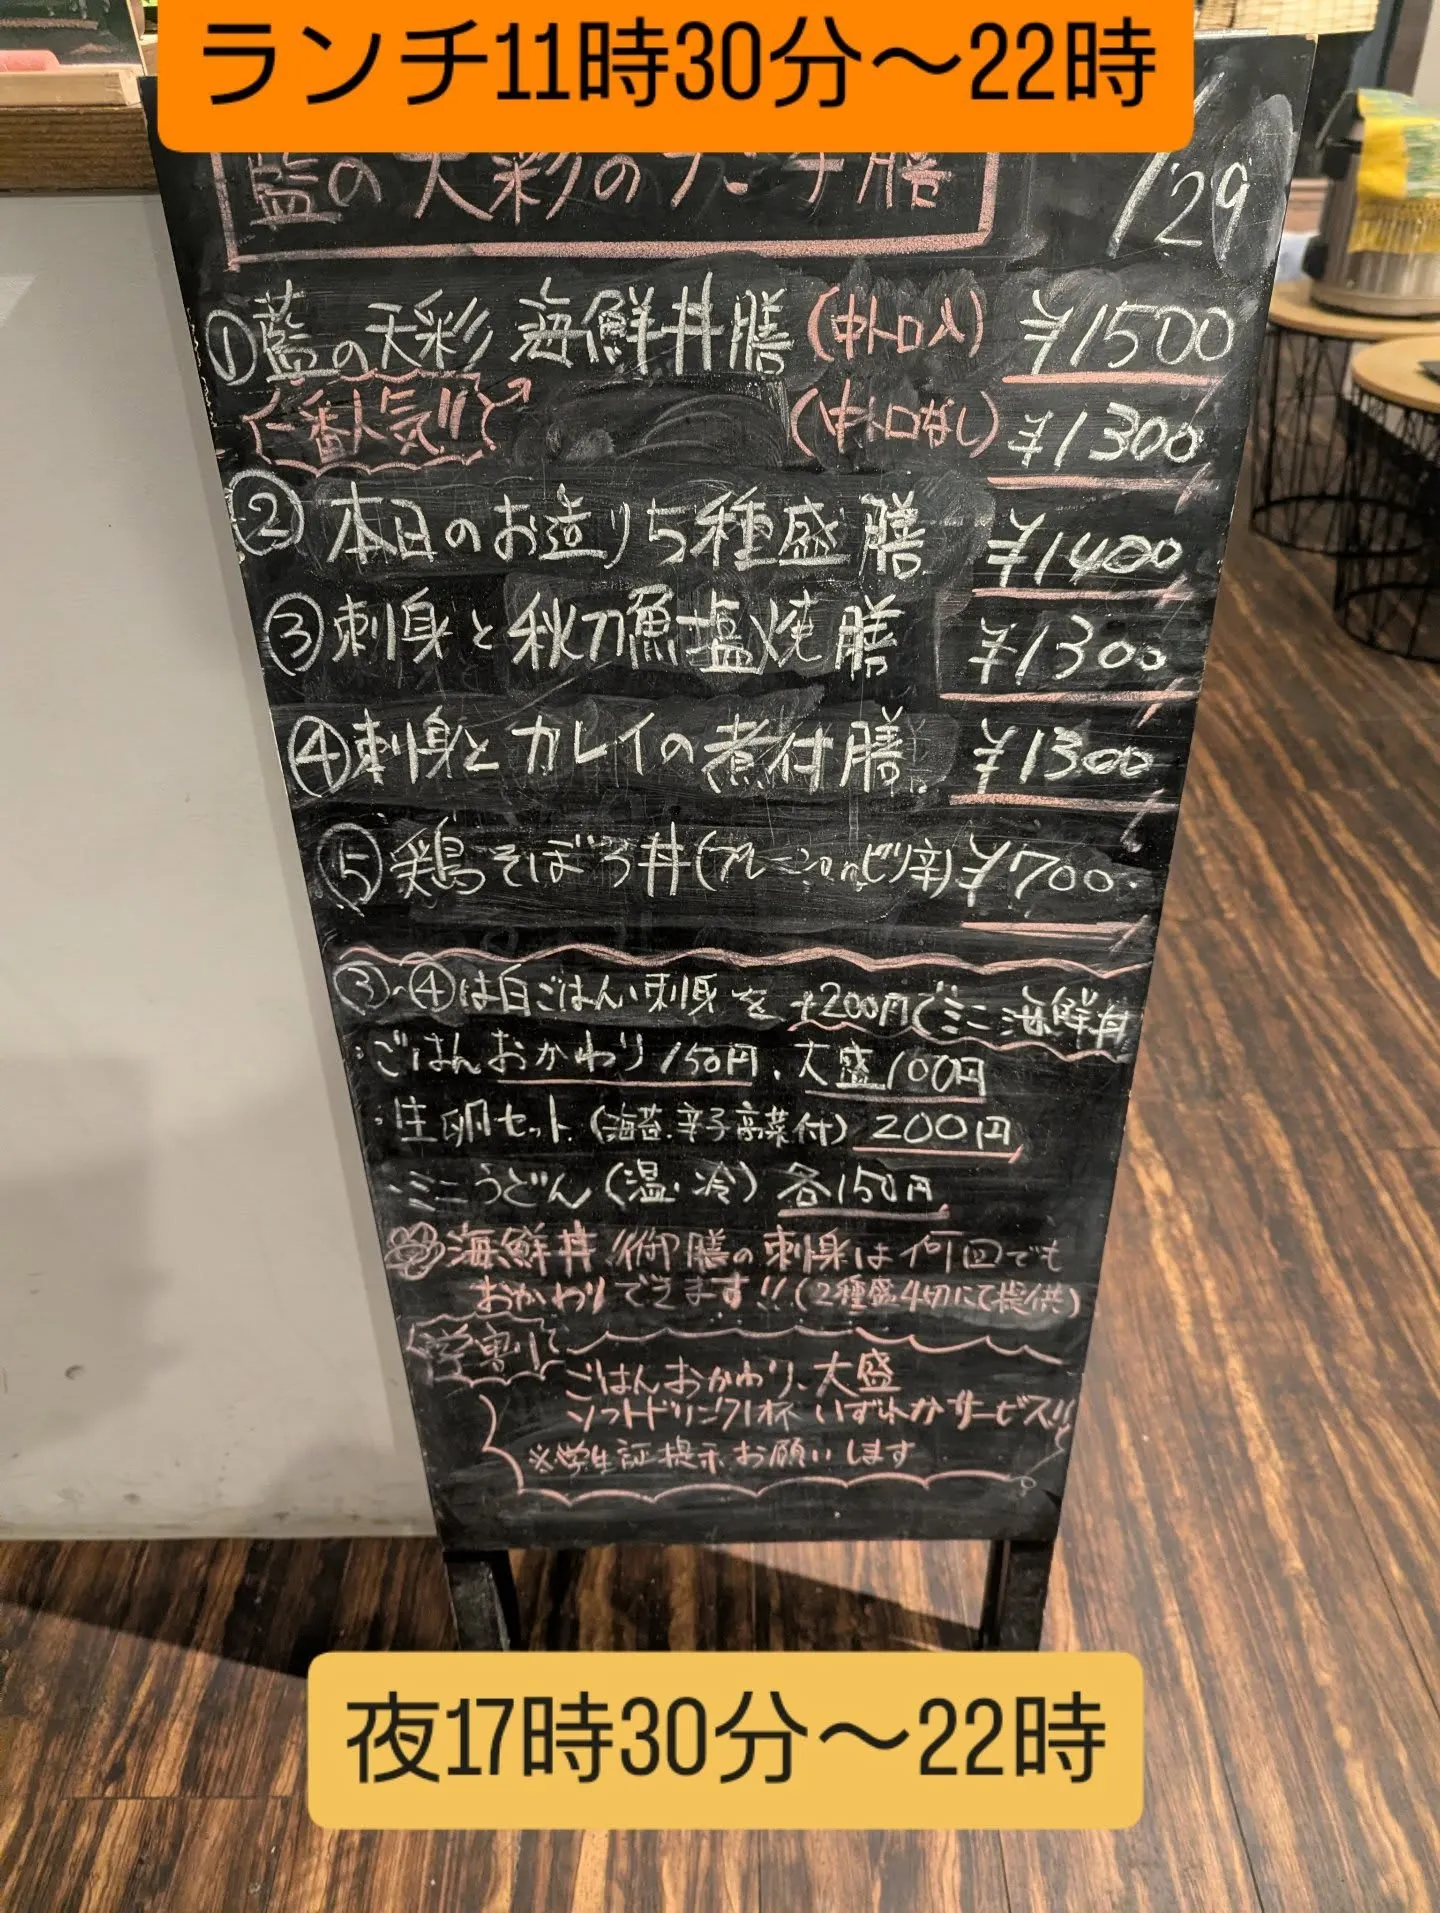 ランチ11時30分〜22時
藍の天彩のランチ膳
/29
①藍の天彩 海鮮丼膳 (中トロ入) ¥1500
一番人気!! (中トロなし) ¥1300
② 本日のお造り5種盛膳 ¥1400
③刺身と秋刀魚塩焼膳 ¥1300
④刺身とカレイの煮付膳 ¥1300
⑤鶏そぼろ丼(プレーンorピリ辛) ¥700
③~④は白ごはん、刺身を+200円でミニ海鮮丼
・ごはんおかわり150円、大盛100円
・生卵セット(海苔、辛子高菜付) 200円
・ミニうどん(温・冷) 各150円
海鮮丼/御膳の刺身は何回でも
おかわりできます!!(2種盛4切にて提供)
学割
ごはんおかわり、大盛
ソフトドリンク1杯 いずれかサービス!!
※学生証提示お願いします
夜17時30分〜22時